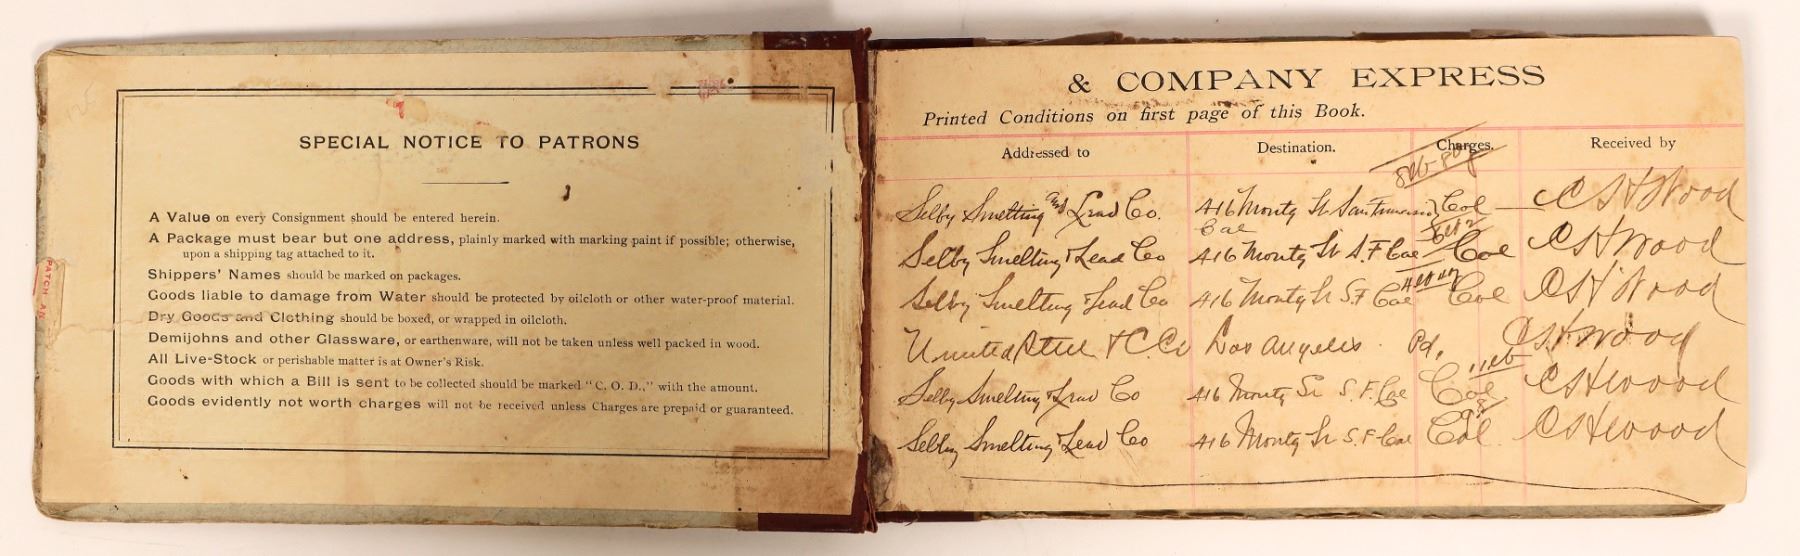 SPECIAL NOTICE TO PATRONS
A Value on every Consignment should be entered herein.
A Package must bear but one address, plainly marked with marking paint if possible; otherwise,
upon a shipping tag attached to it.
Shippers' Names should be marked on packages.
Goods liable to damage from Water should be protected by oilcloth or other water-proof material.
Dry Goods and Clothing should be boxed, or wrapped in oilcloth.
Demijohns and other Glassware, or earthenware, will not be taken unless well packed in wood.
All Live-Stock or perishable matter is at Owner's Risk.
Goods with which a Bill is sent to be collected should be marked "C. O. D.," with the amount.
Goods evidently not worth charges will not be received unless Charges are prepaid or guaranteed.
PATCH
& COMPANY EXPRESS
Printed Conditions on first page of this Book.
Addressed to Destination. Charges. Received by
Selby Smelting and Lead Co. 416 Montg St San Francisco Col C S H Wood
Cal
Selby Smelting & Lead Co 416 Montg St S.F Cal Col C S H Wood
Selby Smelting & Lead Co 416 Montg St S.F Cal Col C S H Wood
United & C. Co Los Angeles Pd, C S H Wood
Selby Smelting & Lead Co 416 Montg St S.F. Cal Col C S H Wood
Selby Smelting & Lead Co 416 Montg St S.F Cal Col C S H Wood